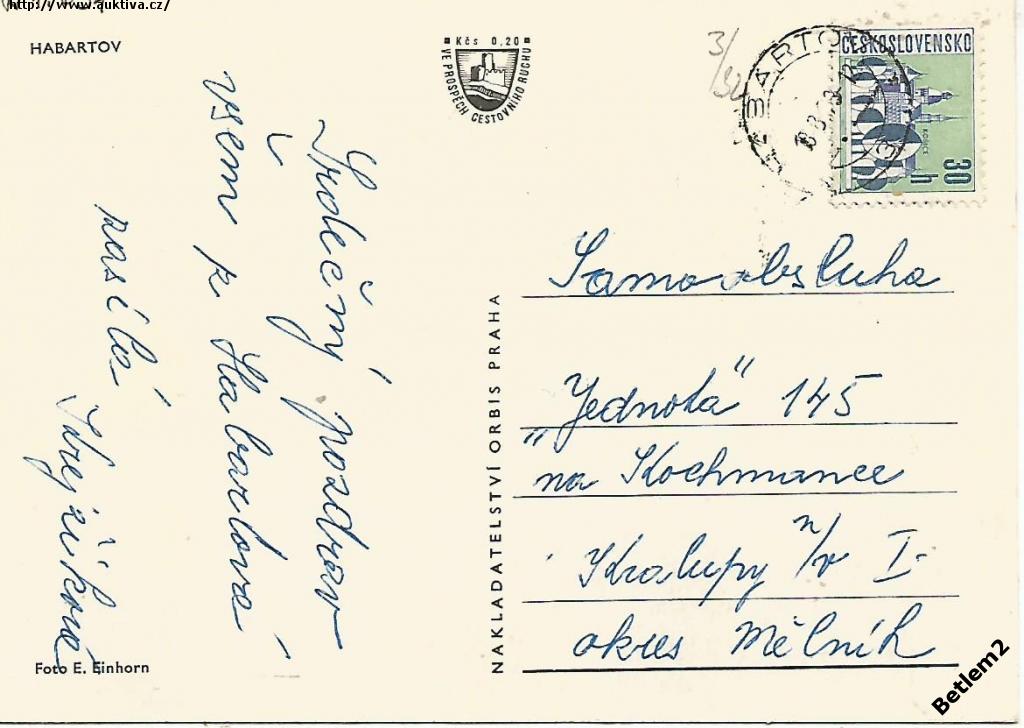 http://www.auktiva.cz/
HABARTOV
Kčs 0,20
VE PROSPĚCH CESTOVNÍHO RUCHU
3/
ČESKOSLOVENSKO
30 h
Srdečný pozdrav
všem z Habartova
zasílá
NAKLADATELSTVÍ ORBIS PRAHA
Samoobsluha
„Jednota" 145
na Kochmance
Kralupy n/v I-
okres Mělník
Foto E. Einhorn
Betlem2